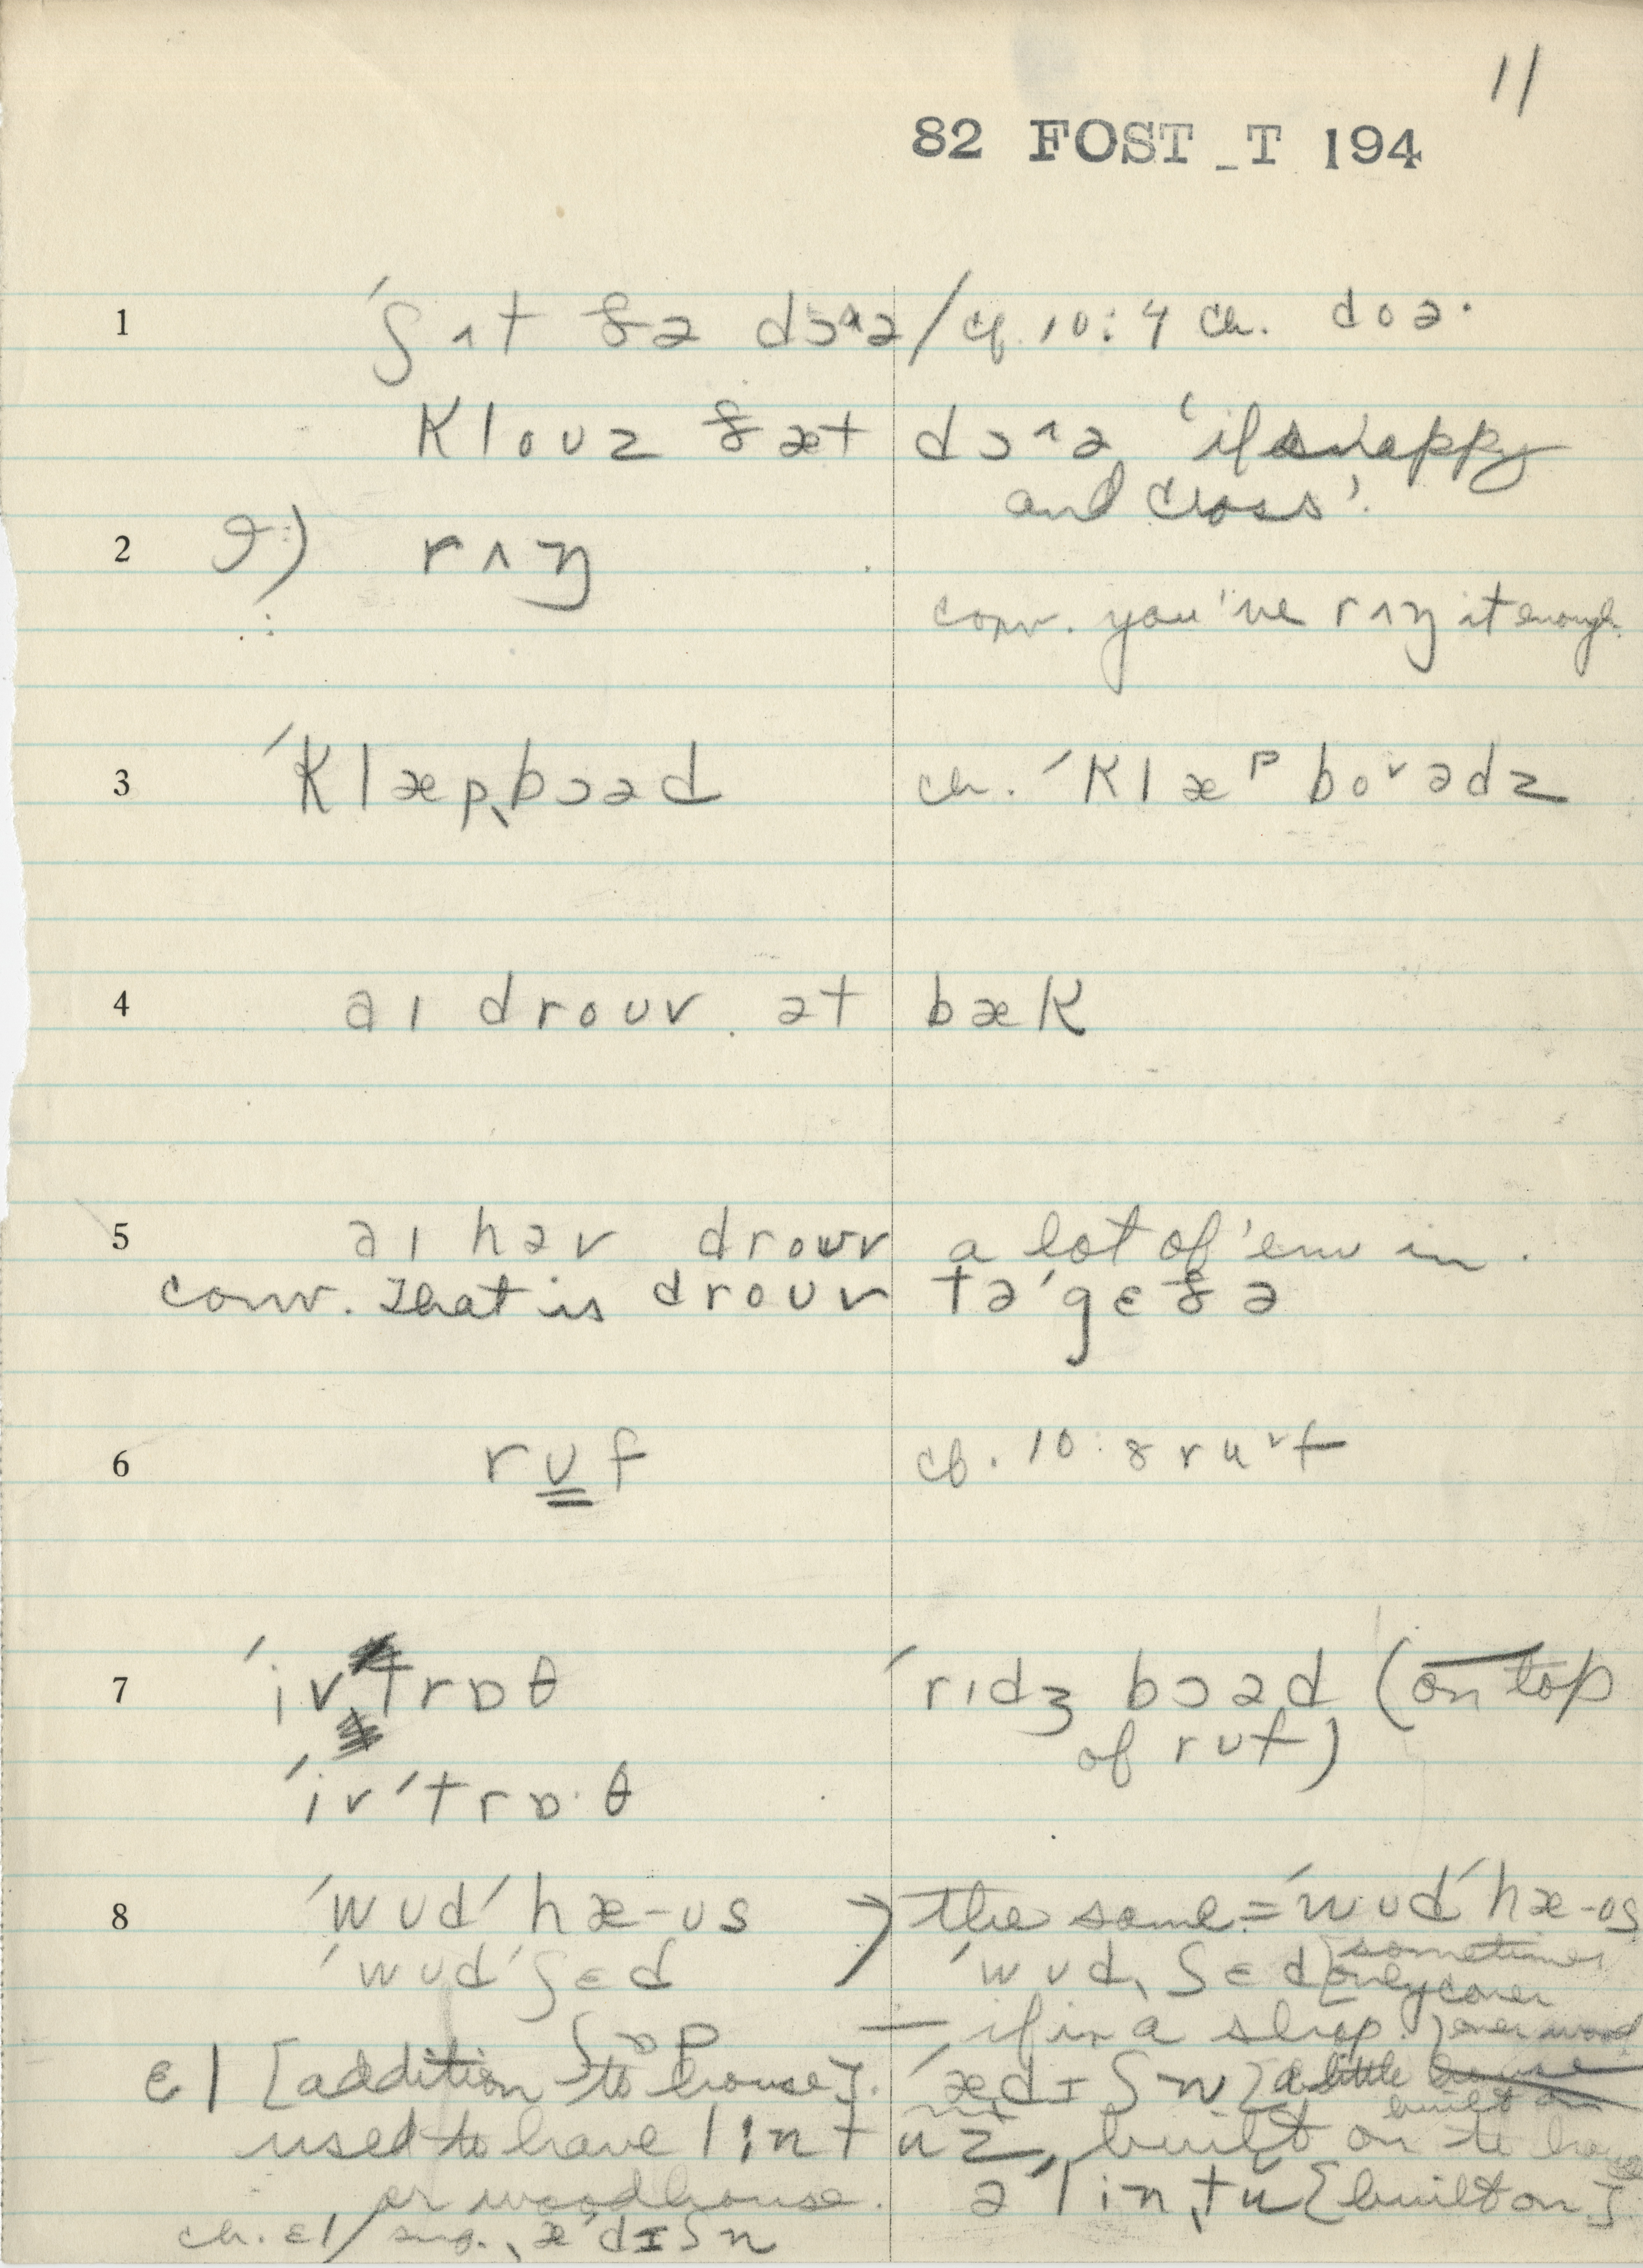 11
82 FOST_T 194
1 ˈʃʌt ðə dɔ^ə / cf. 10:4 ch. doə·
klouz ðæt dɔ^ə 'if snappy
and cross'.
2 rʌŋ
conv. you've rʌŋ it enough
3 ˈklæpˌbɔəd ch. ˈklæᵖ boᵛədz
4 aɪ drouv ət bæk
5 aɪ həv drouv a lot of 'em in.
conv. That is drouv təˈgɛðə
6 rʊf cf. 10:8 ruᵛf
7 ˈivˈtrɒθ ˈrɪdʒ bɔəd (on top
of rʊf)
ˈivˈtrɒ·θ
8 ˈwʊdˈhæ-ʊs the same = ˈwʊdˈhæ-ʊs
ˈwʊdˈʃɛd ˈwʊdˌʃɛd [sometimes
only cover
ʃɒp — if in a shop.] over wood
ɛl [addition to house]. ˈædɪʃn [a little house
built on
used to have linˌtuz, built on to house
or woodhouse. ə ˈlinˌtu [built on]
ch. ɛl / sug. ˌæˈdɪʃn